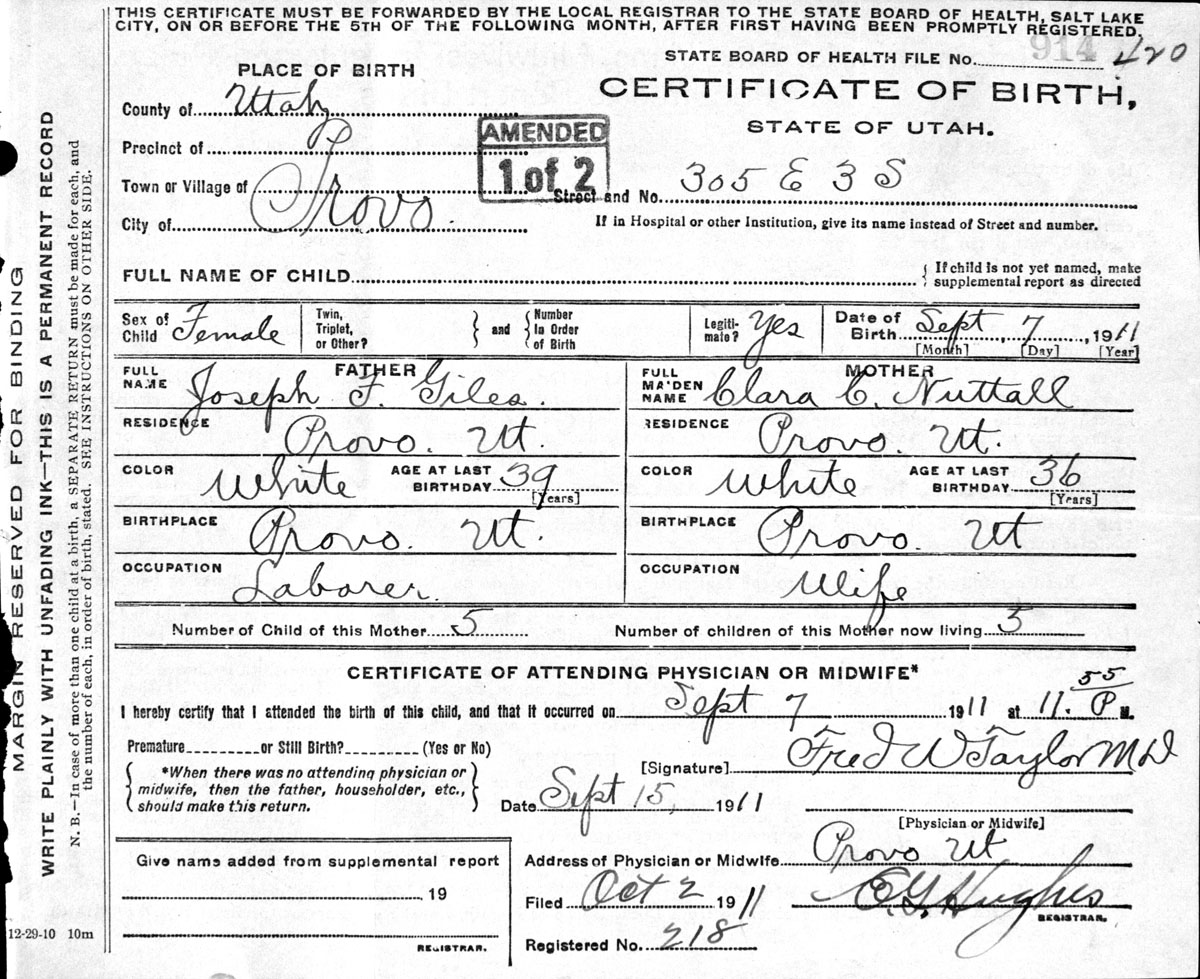 THIS CERTIFICATE MUST BE FORWARDED BY THE LOCAL REGISTRAR TO THE STATE BOARD OF HEALTH, SALT LAKE
CITY, ON OR BEFORE THE 5TH OF THE FOLLOWING MONTH, AFTER FIRST HAVING BEEN PROMPTLY REGISTERED.
STATE BOARD OF HEALTH FILE No. 914 420
PLACE OF BIRTH
CERTIFICATE OF BIRTH,
STATE OF UTAH.
County of Utah
Precinct of
Town or Village of
City of Provo.
AMENDED
1 of 2
Street and No. 305 E 3 S
If in Hospital or other Institution, give its name instead of Street and number.
FULL NAME OF CHILD { If child is not yet named, make
supplemental report as directed
Sex of Child Female
Twin, Triplet, or Other? } and { Number In Order of Birth
Legiti-mate? Yes
Date of Birth Sept 7, 1911
[Month] [Day] [Year]
FATHER
FULL NAME Joseph F. Giles.
RESIDENCE Provo. Ut.
COLOR White AGE AT LAST BIRTHDAY 39
[Years]
BIRTHPLACE Provo. Ut.
OCCUPATION Laborer.
MOTHER
FULL MAIDEN NAME Clara C. Nuttall
RESIDENCE Provo. Ut.
COLOR White AGE AT LAST BIRTHDAY 36
[Years]
BIRTHPLACE Provo. Ut
OCCUPATION Wife
Number of Child of this Mother 5 Number of children of this Mother now living 5
CERTIFICATE OF ATTENDING PHYSICIAN OR MIDWIFE*
I hereby certify that I attended the birth of this child, and that it occurred on Sept 7 1911 at 11.55 P M.
Premature or Still Birth? (Yes or No)
{ *When there was no attending physician or
midwife, then the father, householder, etc.,
should make this return. }
[Signature] Fred W Taylor MD
Date Sept 15, 1911
[Physician or Midwife]
Give name added from supplemental report
, 19
REGISTRAR.
Address of Physician or Midwife Provo Ut
Filed Oct 2 1911 E. G. Hughes
REGISTRAR.
Registered No. 218
MARGIN RESERVED FOR BINDING
WRITE PLAINLY WITH UNFADING INK—THIS IS A PERMANENT RECORD
N. B.—In case of more than one child at a birth, a SEPARATE RETURN must be made for each, and
the number of each, in order of birth, stated. SEE INSTRUCTIONS ON OTHER SIDE.
12-29-10 10m